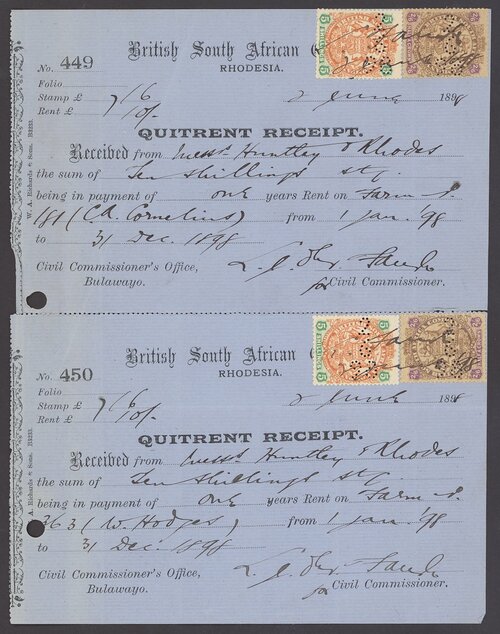 British South African C
RHODESIA.
No. 449
Folio
Stamp £
Rent £
7/6
10/-
2 June 1898
QUITRENT RECEIPT.
Received from Messrs Huntley & Rhodes
the sum of Ten shillings stg.
being in payment of one years Rent on Farm
181 (C.R. Cornelius) from 1 Jan. '98
to 31 Dec. 1898
Civil Commissioner's Office,
Bulawayo.
for Civil Commissioner.
W. A. Richards & Sons.
5
5
British South African C
RHODESIA.
No. 450
Folio
Stamp £
Rent £
7/6
10/-
2 June 1898
QUITRENT RECEIPT.
Received from Messrs Huntley & Rhodes
the sum of Ten shillings stg.
being in payment of one years Rent on Farm
363 (W. Hodges) from 1 Jan. '98
to 31 Dec. 1898
Civil Commissioner's Office,
Bulawayo.
for Civil Commissioner.
A. Richards & Sons.
5
5